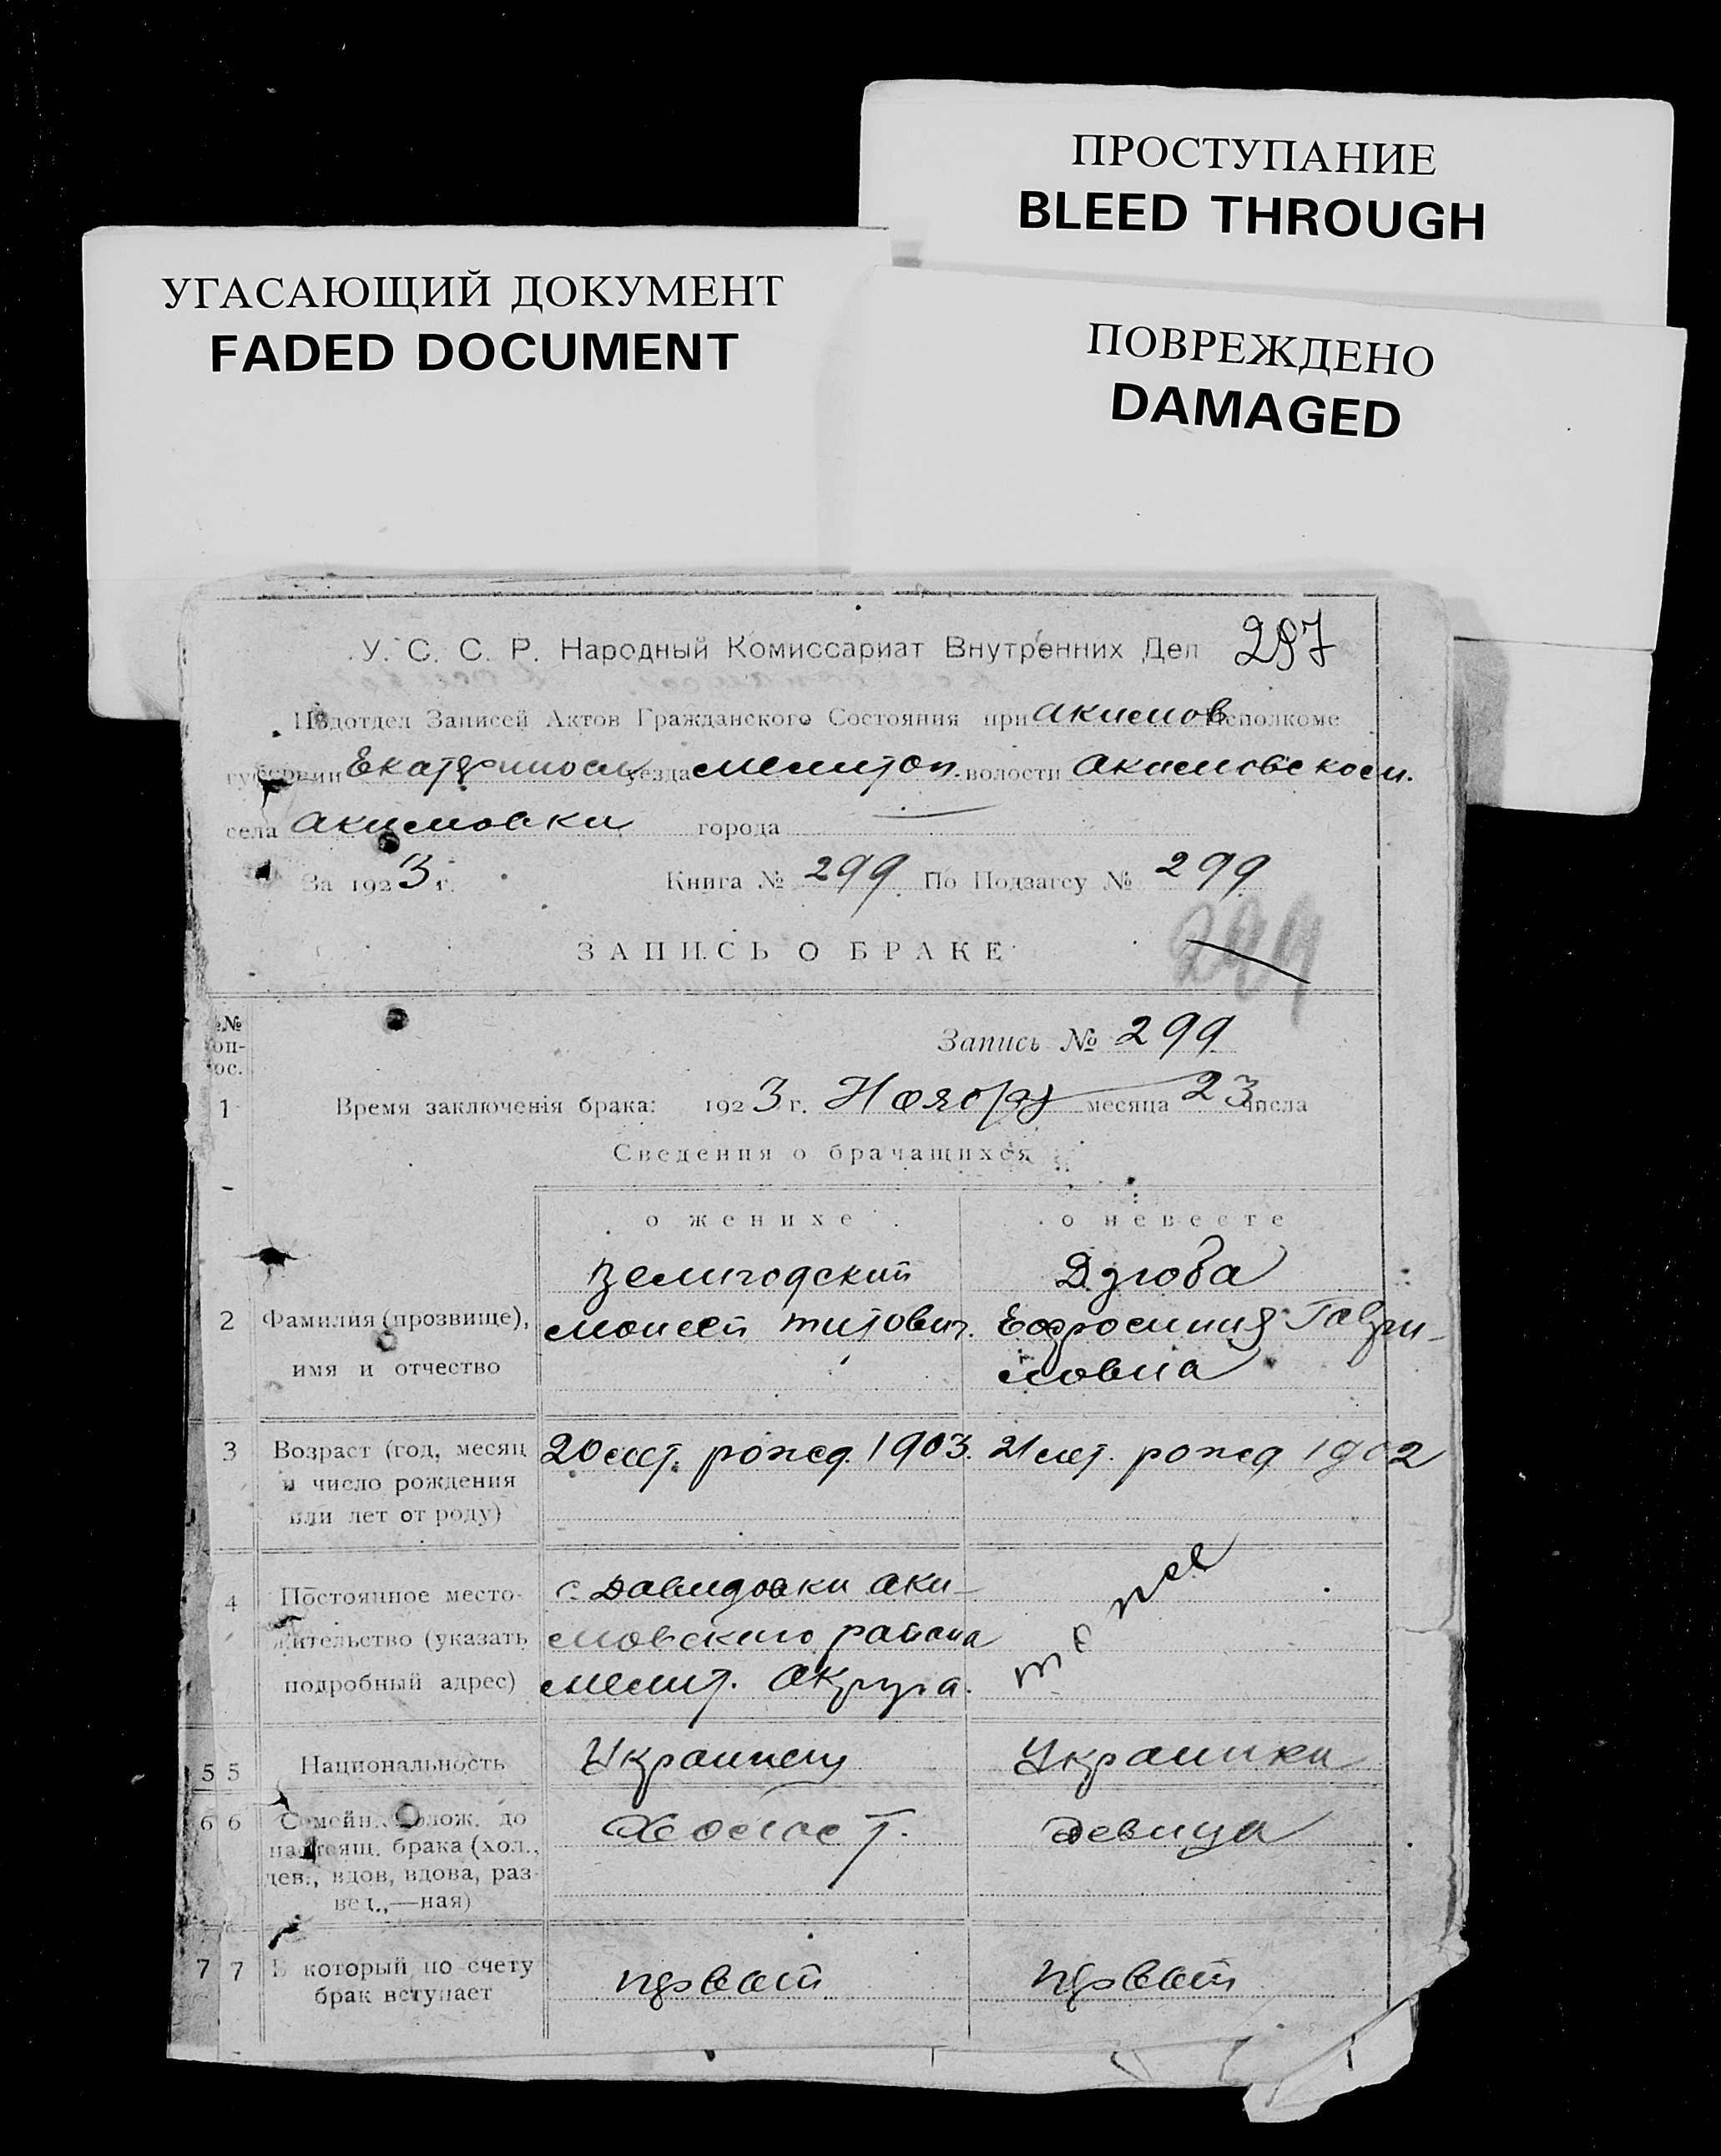 ПРОСТУПАНИЕ
BLEED THROUGH
УГАСАЮЩИЙ ДОКУМЕНТ
FADED DOCUMENT
ПОВРЕЖДЕНО
DAMAGED
У. С. С. Р. Народный Комиссариат Внутренних Дел 297
Подотдел Записей Актов Гражданского Состояния при Акимов Исполкоме
губернии Екатериносл уезда Мелитоп. волости Акимовской.
села Акимовки города —
За 1923 г. Книга № 299 По Подзагсу № 299
ЗАПИСЬ О БРАКЕ 299
№№
воп-
рос.
Запись № 299
1 Время заключенія брака: 1923 г. Ноября месяца 23 числа
Сведения о брачащихся
о женихе о невесте
Велигодский Дзюба
2 Фамилия (прозвище), Моисей Титович. Ефросиния Гаври-
имя и отчество ловна
3 Возраст (год, месяц 20 лет. рожд. 1903. 21 лет. рожд 1902
и число рождения
или лет от роду)
4 Постоянное место- с. Давидовки Аки-
жительство (указать мовского района
подробный адрес) Мелит. Округа. то же
5 5 Национальность Украинец Украинка
6 6 Семейн. полож. до Холост. девица
настоящ. брака (хол.,
дев., вдов, вдова, раз-
вед.,—ная)
7 7 В который по счету первый первый
брак вступает